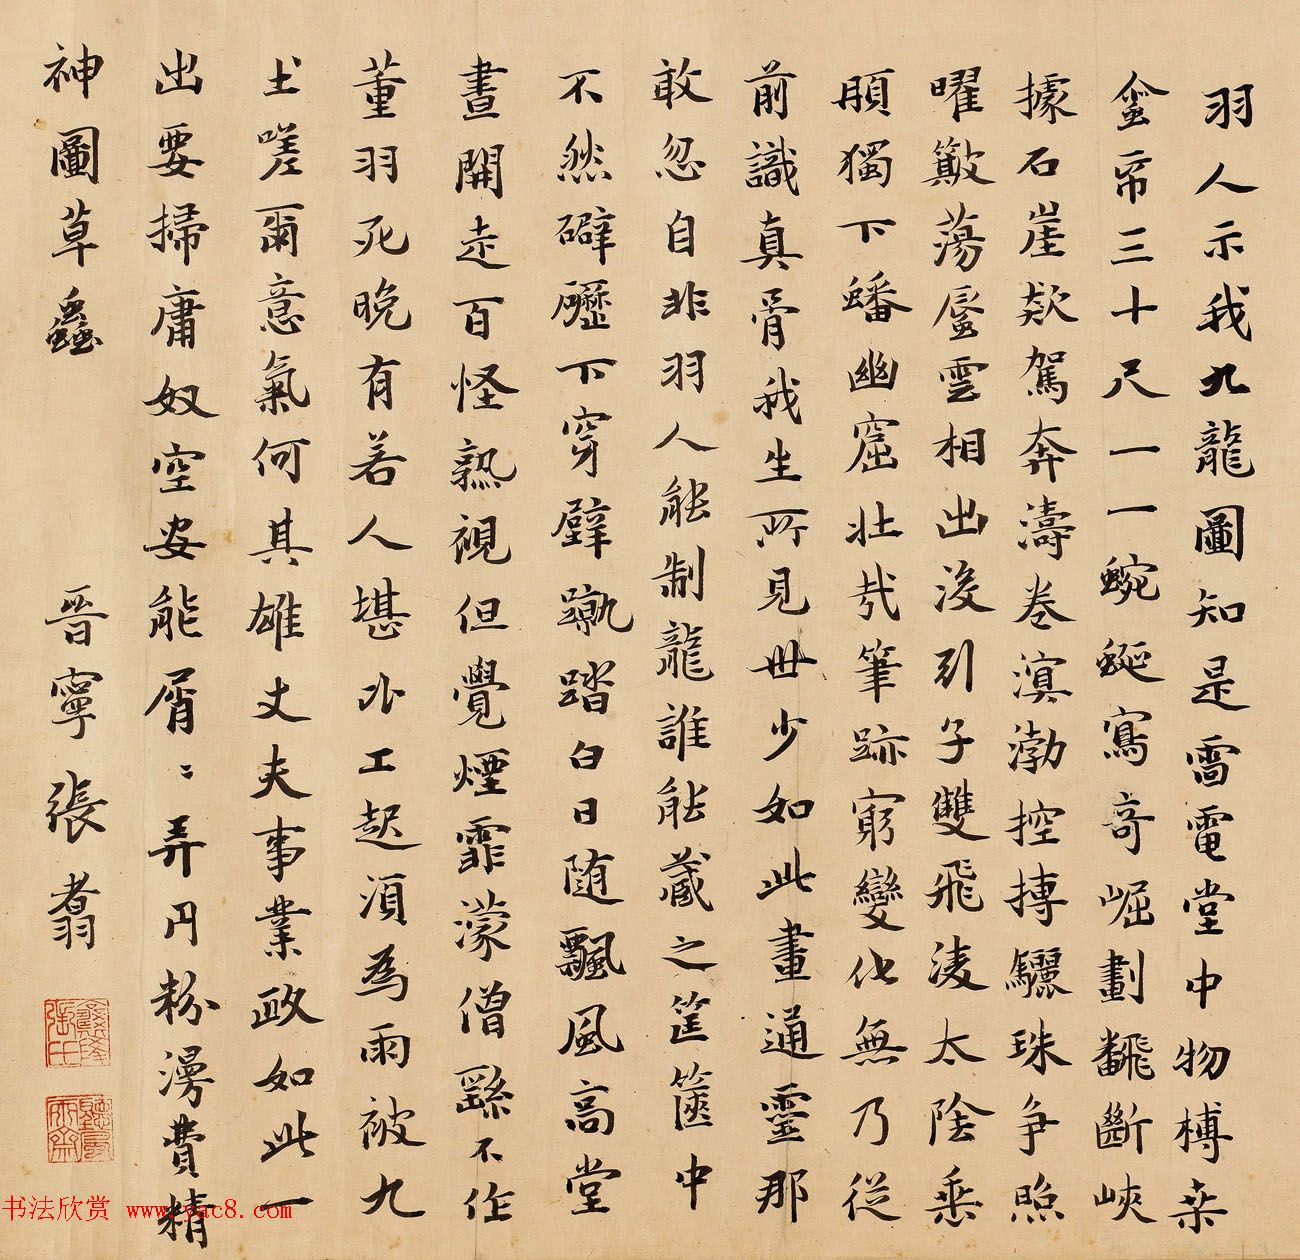 羽人示我九龍圖知是雷電堂中物榑桑
蚕帋三十尺一一蜿蜒寫奇崛劃飜斷峽
據石崖欻駕奔濤卷溟渤控摶驪珠争照
曜簸蕩層雲相出沒引子雙飛淩太陰垂
頭獨下蟠幽窟壯哉筆跡窮變化無乃從
前識真骨我生所見世少如此畫通靈那
敢忽自非羽人能制龍誰能藏之筐篋中
不然礔礰下穿壁蹴踏白日随飄風高堂
晝開走百怪熟視但覺煙霏濛僧繇不作
董羽死晚有若人堪外工起須為雨被九
土嗟爾意氣何其雄丈夫事業政如此一
出要掃庸奴空安能屑〻弄丹粉漫費精
神圖草蟲
晋寧張翥
书法欣赏 www.yac8.com